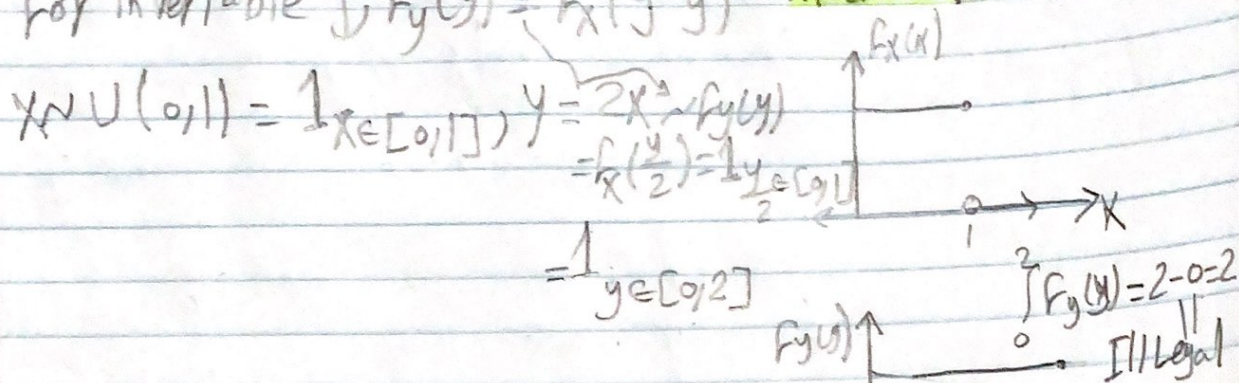 For invertible
X~U(0,1) = 1 x∈[0,1], Y = 2X ~ fy(y)
= fx(y/2) = 1 y/2 ∈[0,1]
= 1 y∈[0,2]
fx(x)
X
1
2
∫ fy(y) = 2-0 = 2
0
Illegal
fy(y)